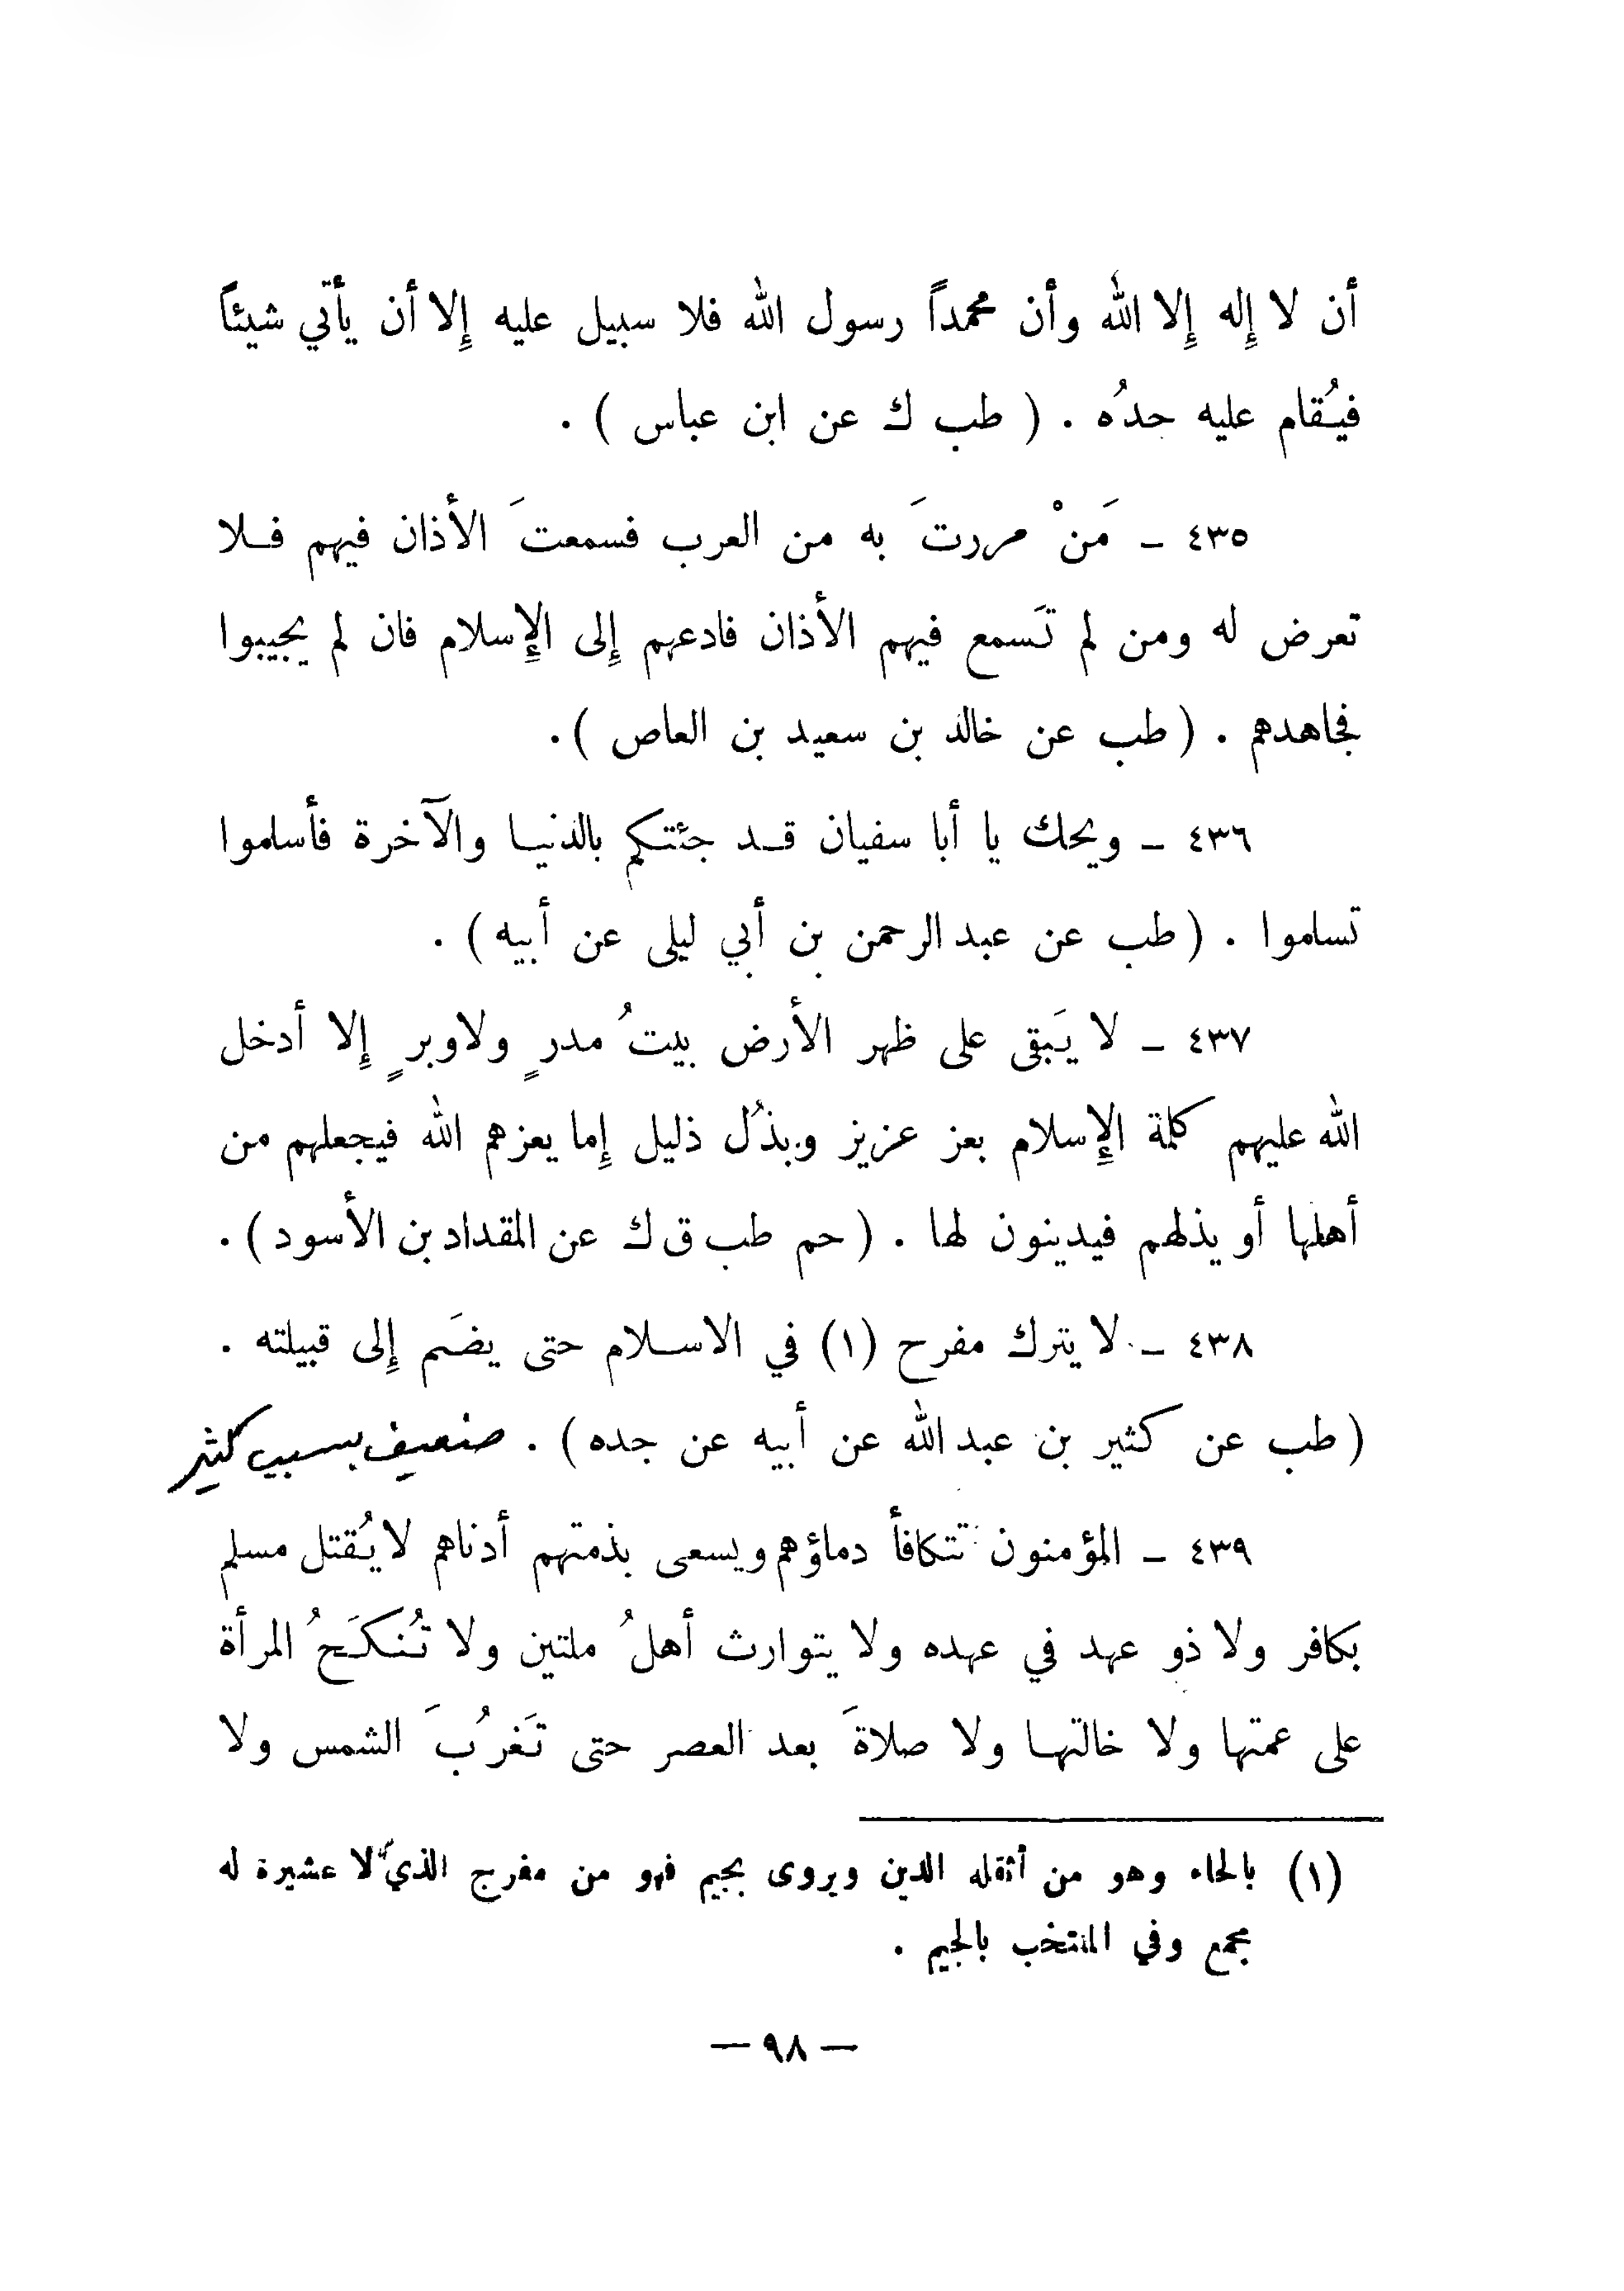 أن لا إِله إِلا الله وأن محمداً رسول الله فلا سبيل عليه إِلا أن يأتي شيئاً
فيُقام عليه حدُه . ( طب ك عن ابن عباس ) .
٤٣٥ ـ مَنْ مررتَ به من العرب فسمعتَ الأذان فيهم فلا
تعرض له ومن لم تَسمع فيهم الأذان فادعهم إِلى الإِسلام فان لم يجيبوا
فجاهدهم . ( طب عن خالد بن سعيد بن العاص ) .
٤٣٦ ـ ويحك يا أبا سفيان قد جئتكم بالدنيا والآخرة فأسلموا
تسلموا . ( طب عن عبد الرحمن بن أبي ليلى عن أبيه ) .
٤٣٧ ـ لا يَبقى على ظهر الأرض بيتُ مدرٍ ولا وبرٍ إِلا أدخل
الله عليهم كلمة الإِسلام بعز عزيز وبذُل ذليل إِما يعزهم الله فيجعلهم من
أهلها أو يذلهم فيدينون لها . ( حم طب ق ك عن المقداد بن الأسود ) .
٤٣٨ ـ لا يترك مفرح (١) في الاسلام حتى يضَم إِلى قبيلته .
( طب عن كثير بن عبد الله عن أبيه عن جده ) . ضعيف بسبب كثير
٤٣٩ ـ المؤمنون تتكافأ دماؤهم ويسعى بذمتهم أدناهم لا يُقتل مسلم
بكافر ولا ذو عهد في عهده ولا يتوارث أهلُ ملتين ولا تُنكَحُ المرأة
على عمتها ولا خالتها ولا صلاةَ بعد العصر حتى تَغرُبَ الشمس ولا
(١) بالحاء وهو من أثقله الدين ويروى بجيم فهو من مفرج الذي لا عشيرة له
مجمع وفي المنتخب بالجيم .
— ٩٨ —